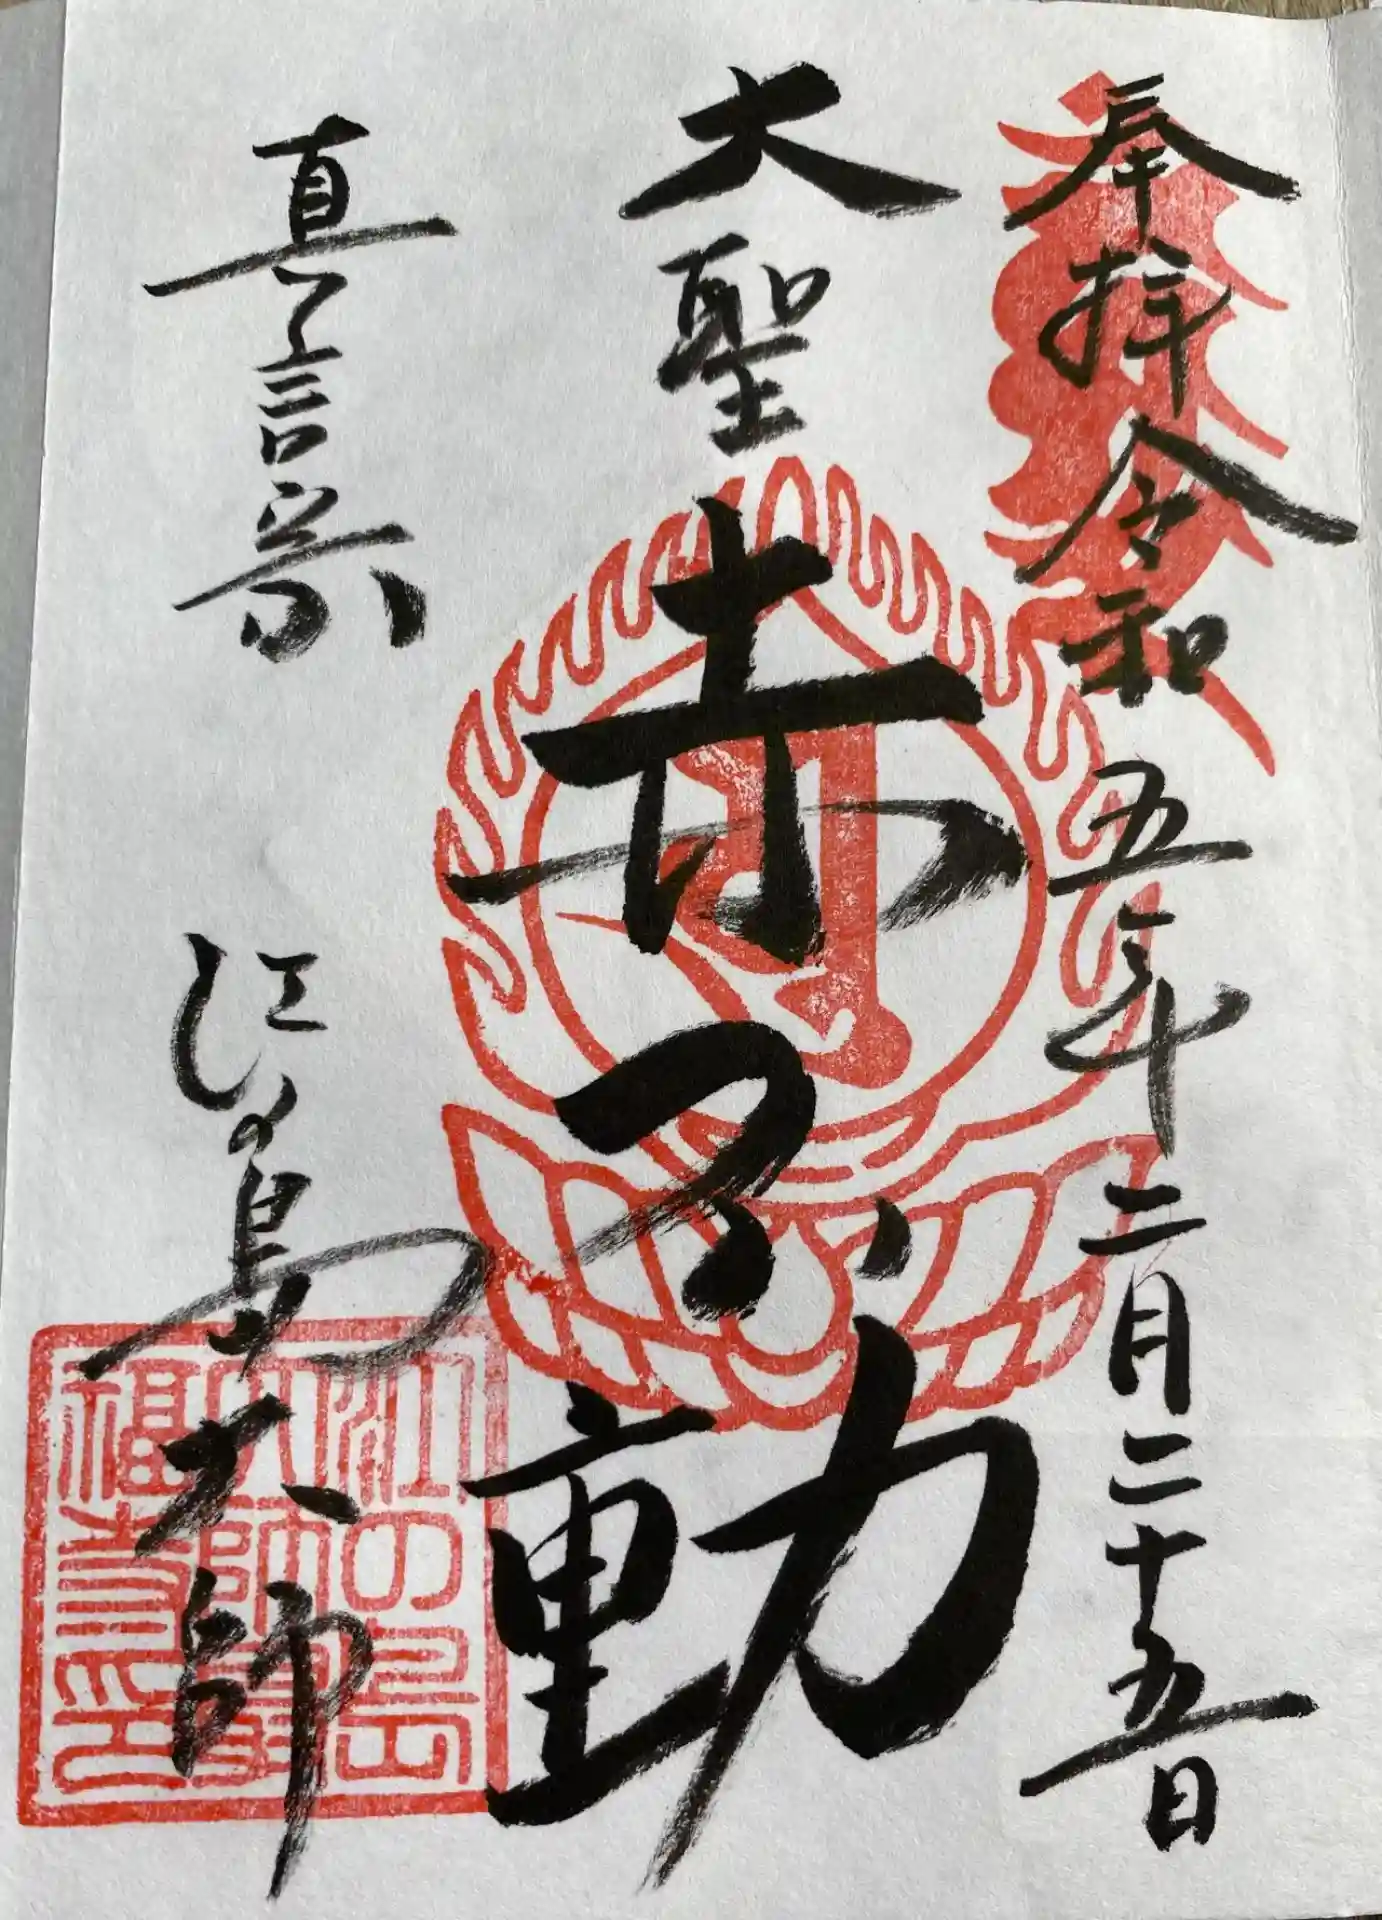 奉拝 令和五年二月二十五日
大聖
赤不動
真言宗
江の島大師
江の島
大師
福寺印